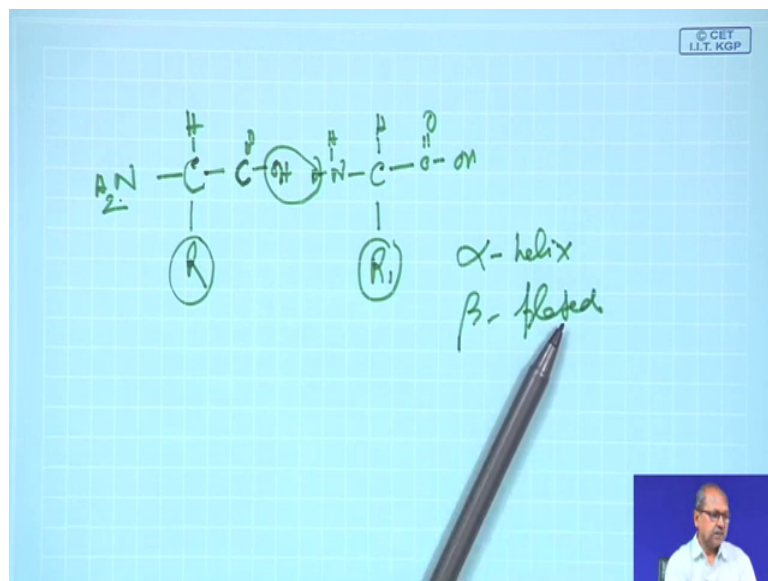 © CET
I.I.T. KGP
H H H O
H₂N - C - C - OH H - N - C - C - OH
R R₁
α - helix
β - pleated